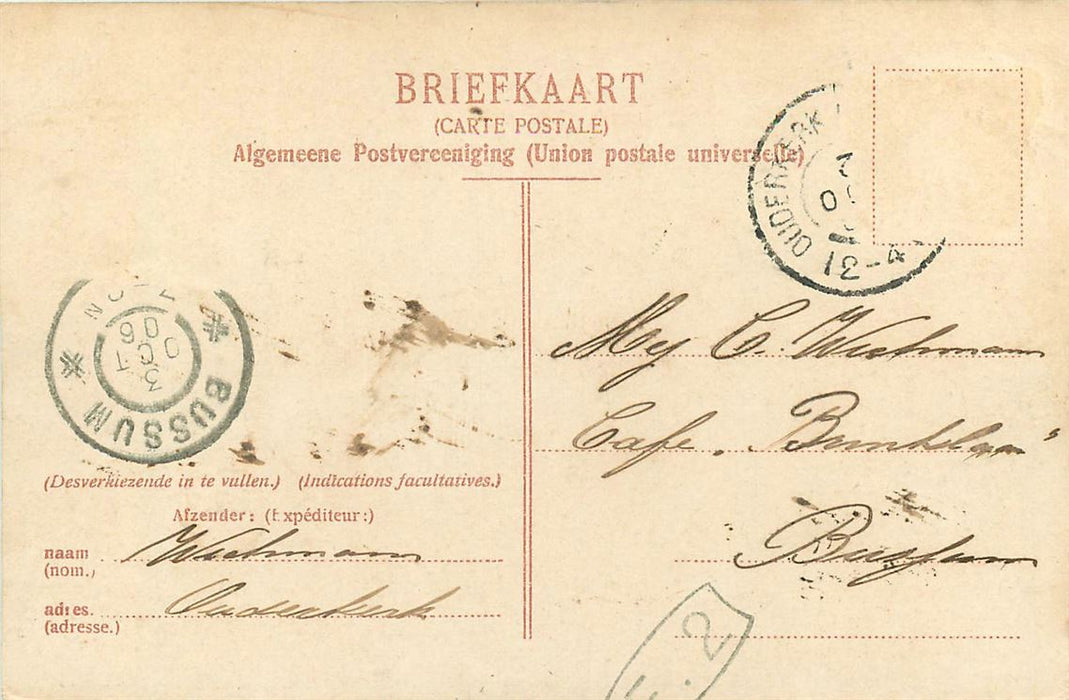 BRIEFKAART
(CARTE POSTALE)
Algemeene Postvereeniging (Union postale universelle)
OUDERKERK
3
12-4
BUSSUM
3 OCT 06
Mej C. Wichmann
Cafe
Bussum
(Desverkiezende in te vullen.) (Indications facultatives.)
Afzender: (Expéditeur:)
naam Wichmann
(nom.)
adres. Ouderkerk
(adresse.)
2